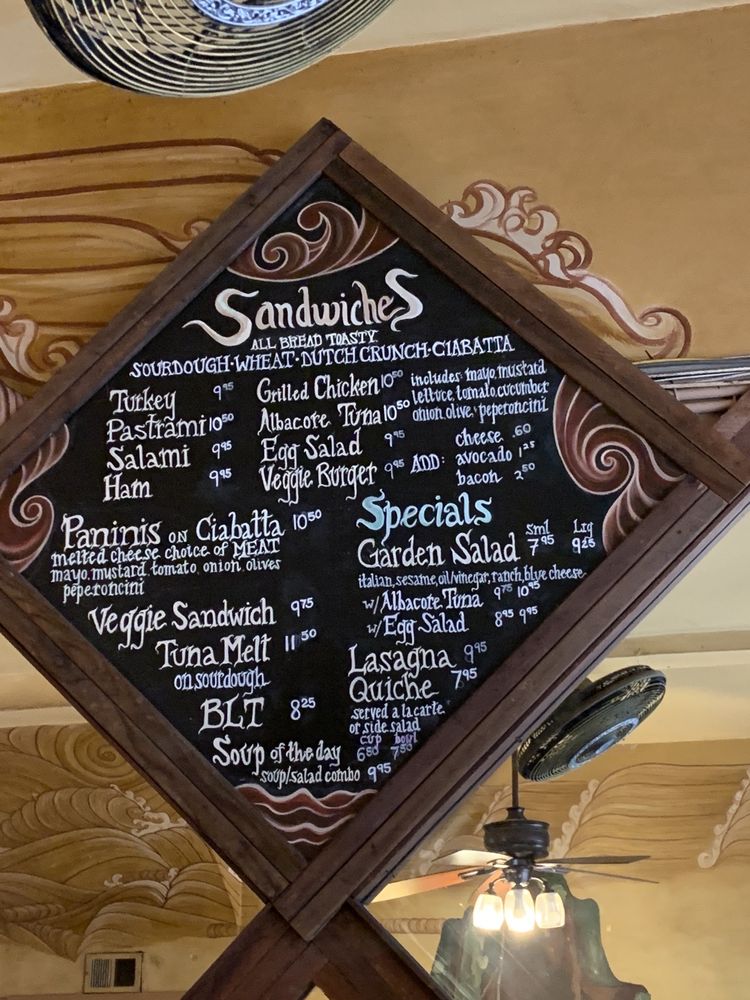 Sandwiches
ALL BREAD TOASTY
SOURDOUGH · WHEAT · DUTCH CRUNCH · CIABATTA
Turkey 9.95
Pastrami 10.50
Salami 9.95
Ham 9.95
Grilled Chicken 10.50
Albacore Tuna 10.50
Egg Salad 9.95
Veggie Burger 9.95
includes: mayo, mustard
lettuce, tomato, cucumber
onion, olive & peperoncini
ADD: cheese .60
avocado 1.25
bacon 2.50
Paninis ON Ciabatta 10.50
melted cheese, choice of MEAT
mayo, mustard, tomato, onion, olives
peperoncini
Veggie Sandwich 9.75
Tuna Melt 11.50
on sourdough
BLT 8.25
Soup of the day cup 6.50 bowl 7.50
soup/salad combo 9.95
Specials
Sml Lrg
Garden Salad 7.95 9.25
italian, sesame, oil/vinegar, ranch, blue cheese
w/ Albacore Tuna 9.75 10.95
w/ Egg Salad 8.95 9.95
Lasagna 9.95
Quiche 7.95
served a la carte
or side salad